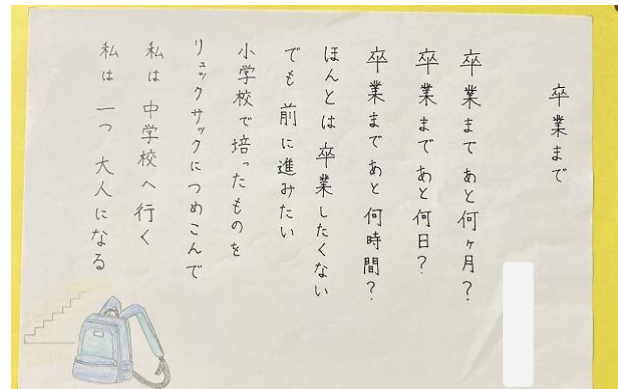 卒業まで
卒業まであと何ヶ月？
卒業まであと何日？
卒業まであと何時間？
ほんとは卒業したくない
でも前に進みたい
小学校で培ったものを
リュックサックにつめこんで
私は中学校へ行く
私は一つ大人になる